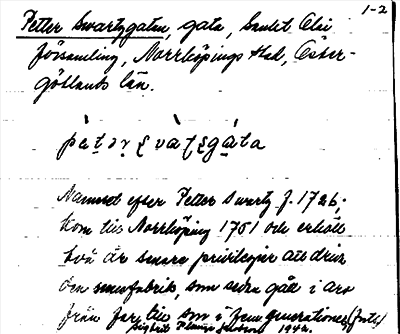 1-2
Petter Swartzgatan, gata, Sankt Olai
församling, Norrköpings stad, Öster-
götlands län.
Namnet efter Petter Swartz f. 1726,
kom till Norrköping 1751 och erhöll
två år senare privilegier att driva
en snusfabrik, som sedan gått i arv
från far till son i fem generationer
1942.